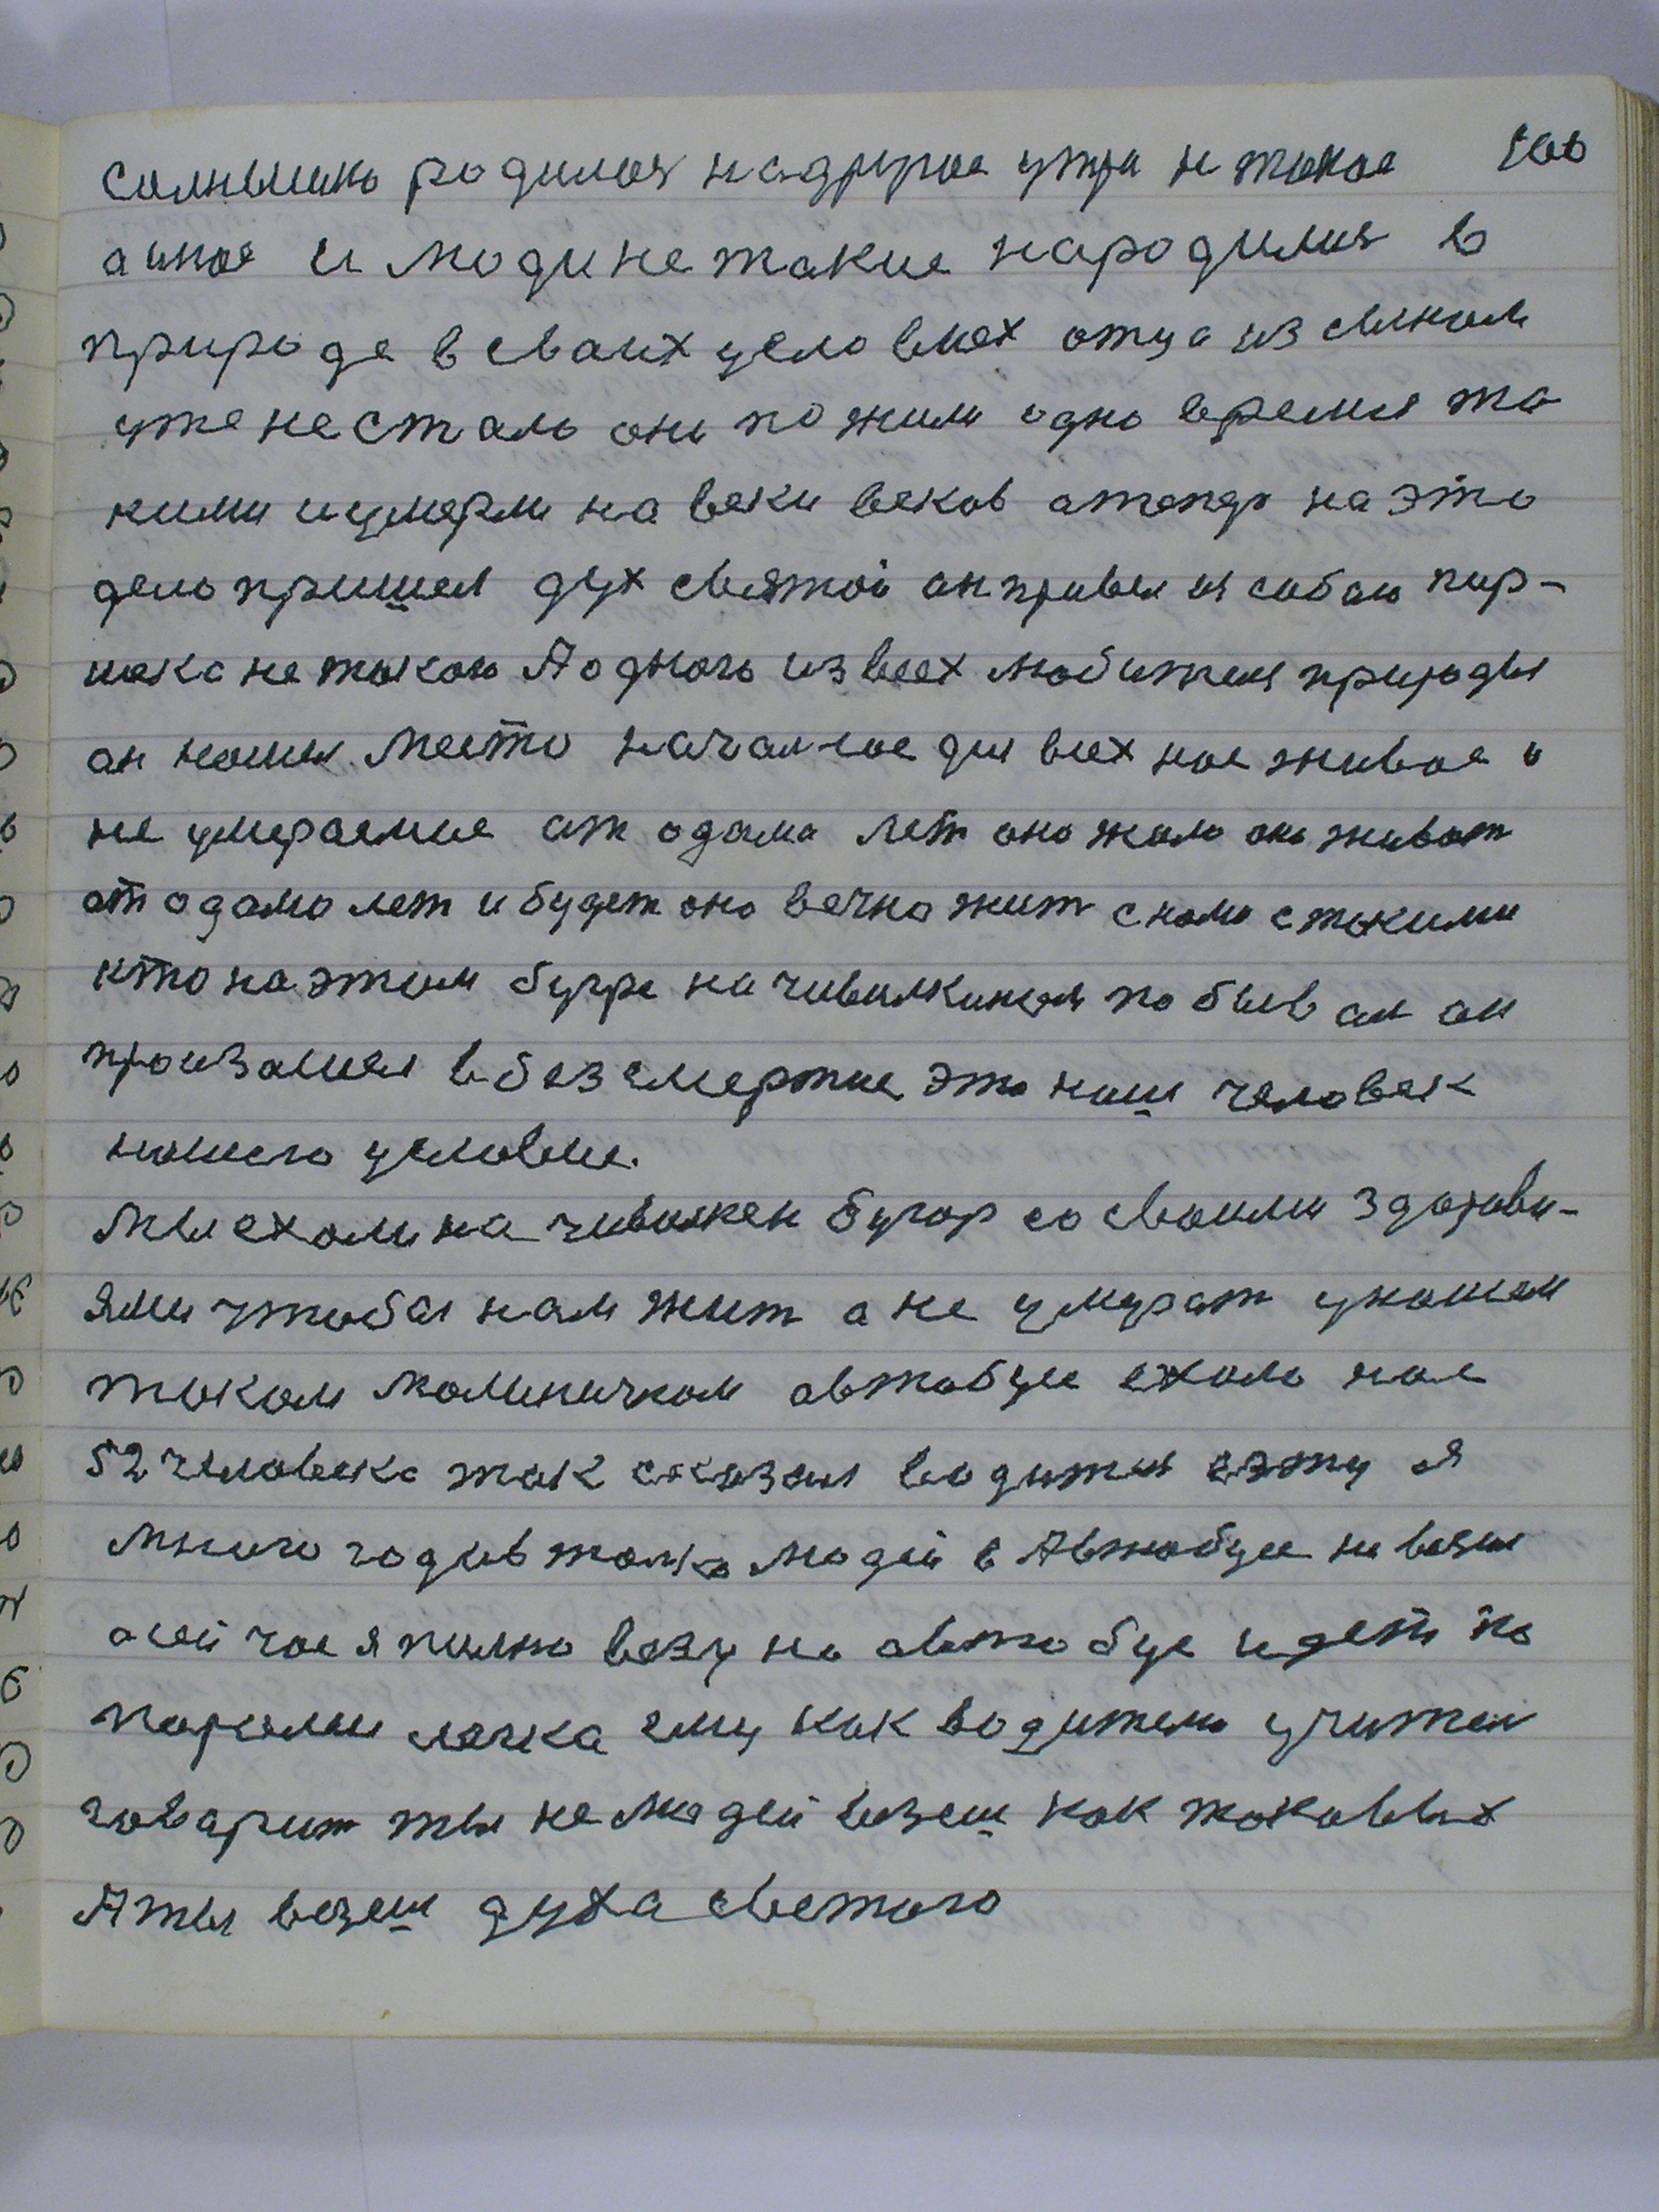 солнышко родилося на другое утра не такое
а иное и люди не такие народилися в
природе в сваих условиях отца из сыном
уже не стало они пожили одно время та
кими и умерли на веки веков а тепер на это
дело пришел дух святой он привел из сабою пар-
нека не такою А одного из всех любителя природы
он нашел место началное для всех нас живое и
не умераемие от одама лет оно жило оно живет
от одама лет и будет оно вечно жит с нами с такими
кто на этом бугре на чивилкином побывал он
произашел в безсмертие это наш человек
нашего условие.
Мы ехали на чивилкен бугор со своими здорови-
ями чтобы нам жит а не умерат у нашем
таком автобусе ехало нас
52 человека так сказал водител я
много годов толко людей в Автобусе не возил
а сейчас я полно везу но автобус идет по
легка ему как водителю учител
говарит ты не людей везеш как таковых
А ты везеш духа светого